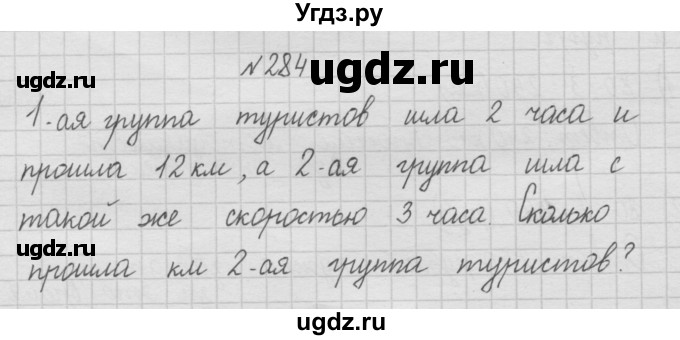 Угдз.ру
№284 ugdz.ru
ugdz.ru
1-ая группа туристов шла 2 часа и
прошла 12 км, а 2-ая группа шла с
такой же скоростью 3 часа. Сколько
ugdz.ru ugdz.ru
прошла км 2-ая группа туристов?
ugdz.ru